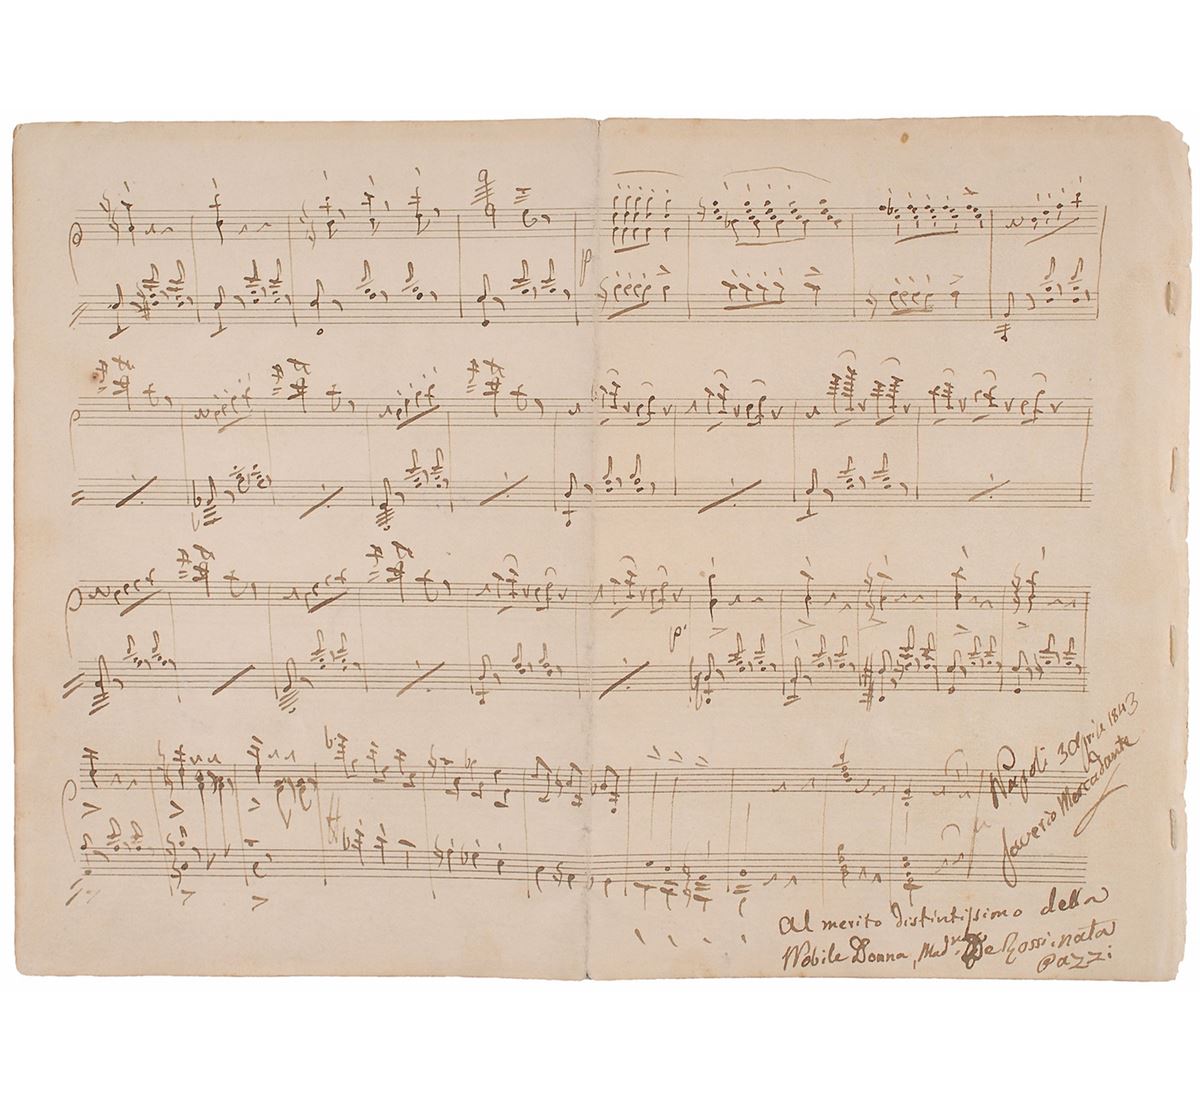 Napoli 30 Aprile 1843
Saverio Mercadante
Al merito distintissimo della
Nobile Donna, Mad.
Pazzi